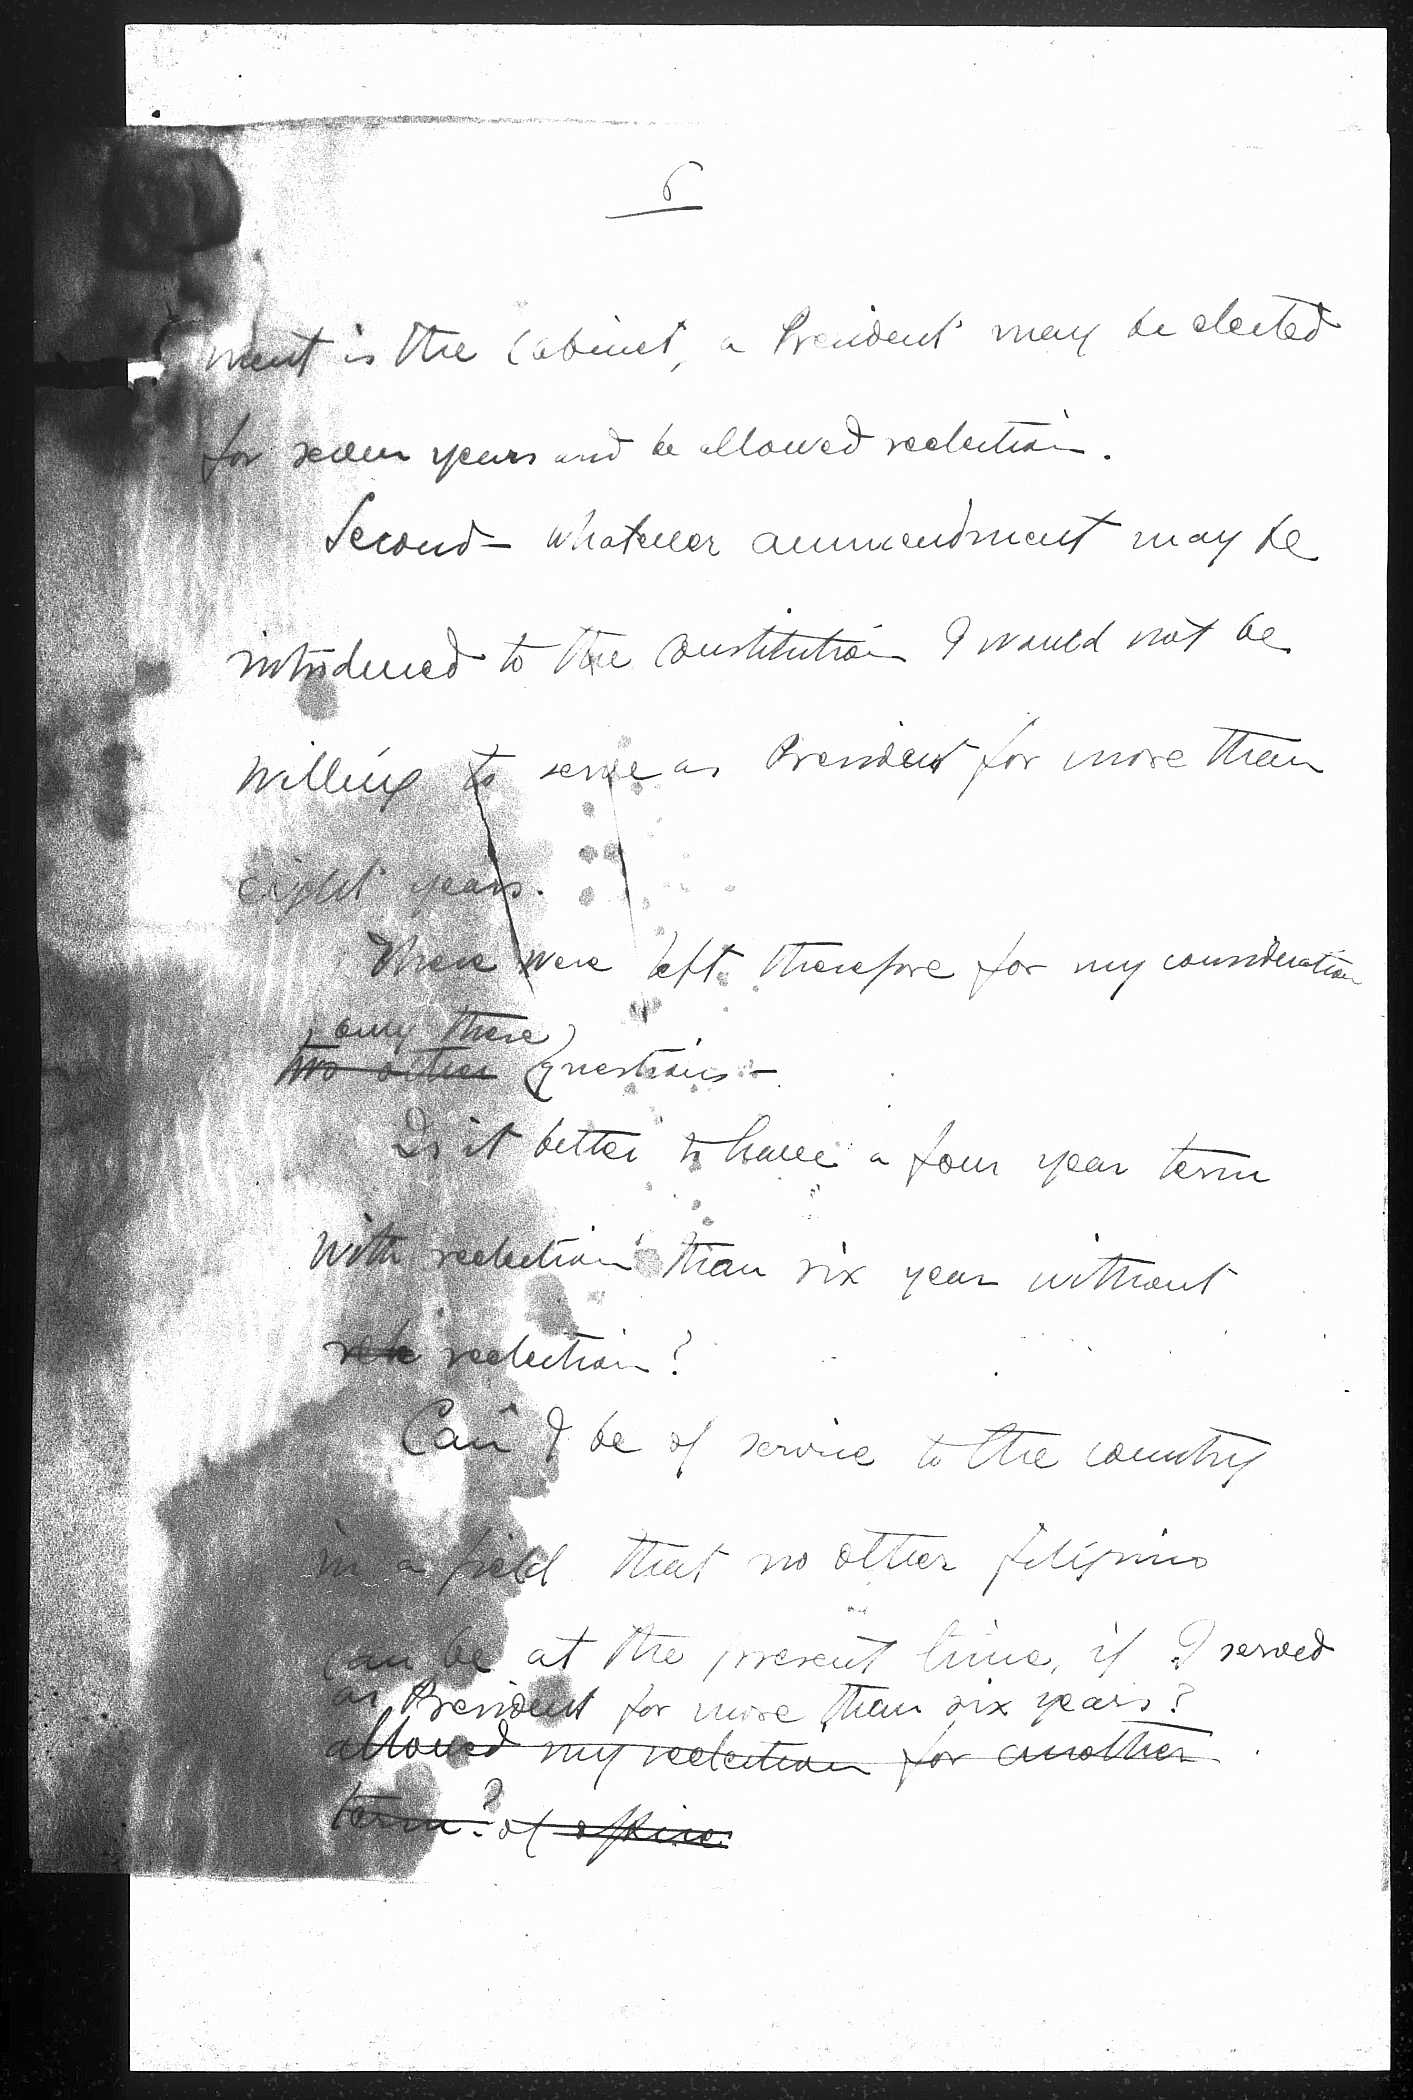 6
ment is the Cabinet, a President may be elected
for seven years and be allowed reelection.
Second - Whatever ammendment may be
introduced to the Constitution I would not be
willing to serve as President for more than
eight years.
There were left therefore for my consideration
only these
two other questions -
Is it better to have a four year term
with reelection than six year without
reelection?
Can I be of service to the country
in a field that no other filipino
can be at the present time, if I served
as President for more than six years?
allowed my reelection for another
term? of office